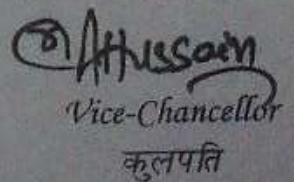 AHussain
Vice-Chancellor
कुलपति